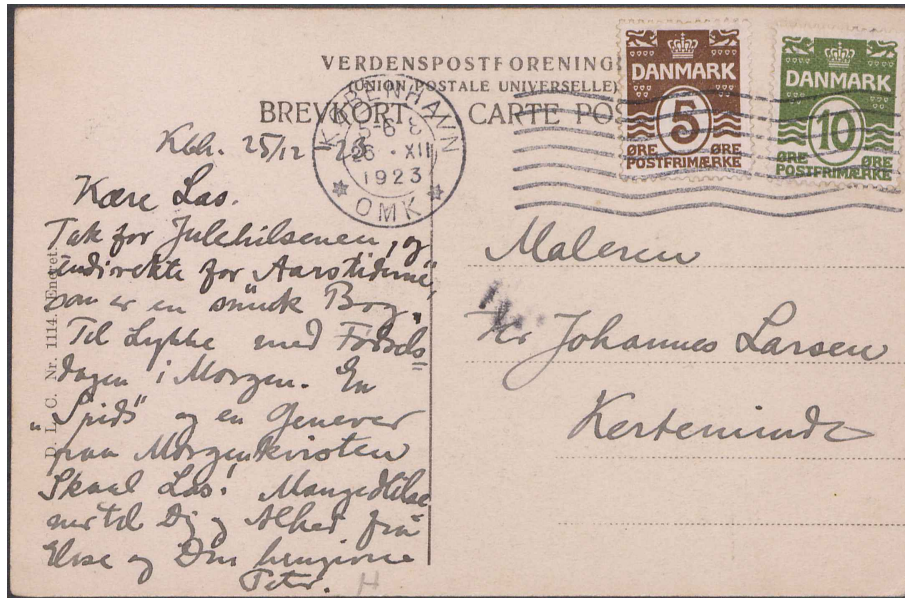 VERDENSPOSTFORENING
(UNION POSTALE UNIVERSELLE)
BREVKORT. CARTE POS
KØBENHAVN
5-6 E
26 · XII
1923
OMK
DANMARK
5
ØRE ØRE
POSTFRIMÆRKE
DANMARK
10
ØRE ØRE
POSTFRIMÆRKE
Kbh. 25/12 23
Kære Las.
Tak for Julehilsenen, og
indirekte for "Aarstiderne",
som er en smuk Bog.
Til Lykke med Fødsels=
dagen i Morgen. En
"Spids" og en Genever
paa Morgenkvisten
Skaal Las! Mange Hilse
ner til Dig og Alhed fra
Elise og Din hengivne
Peter.
H
D. L. C. Nr. 1114. Eneret.
Maleren
Hr Johannes Larsen
Kerteminde